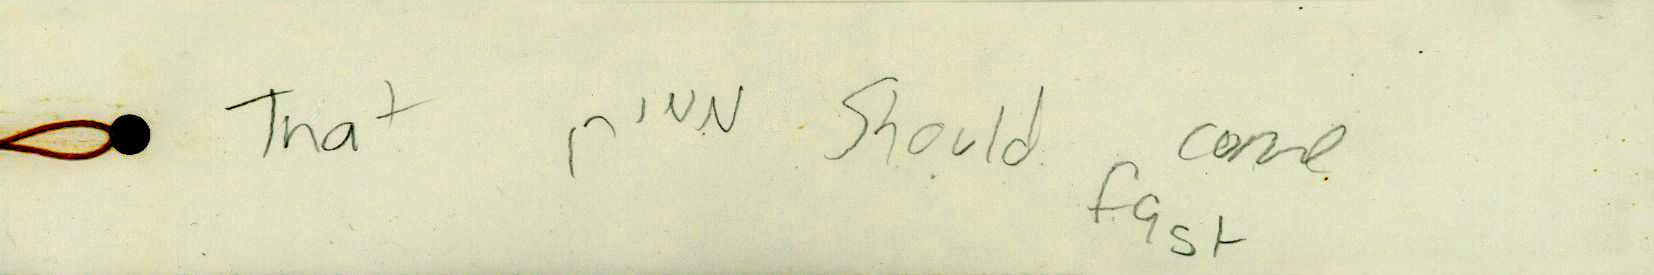 That rinn Should come
fast